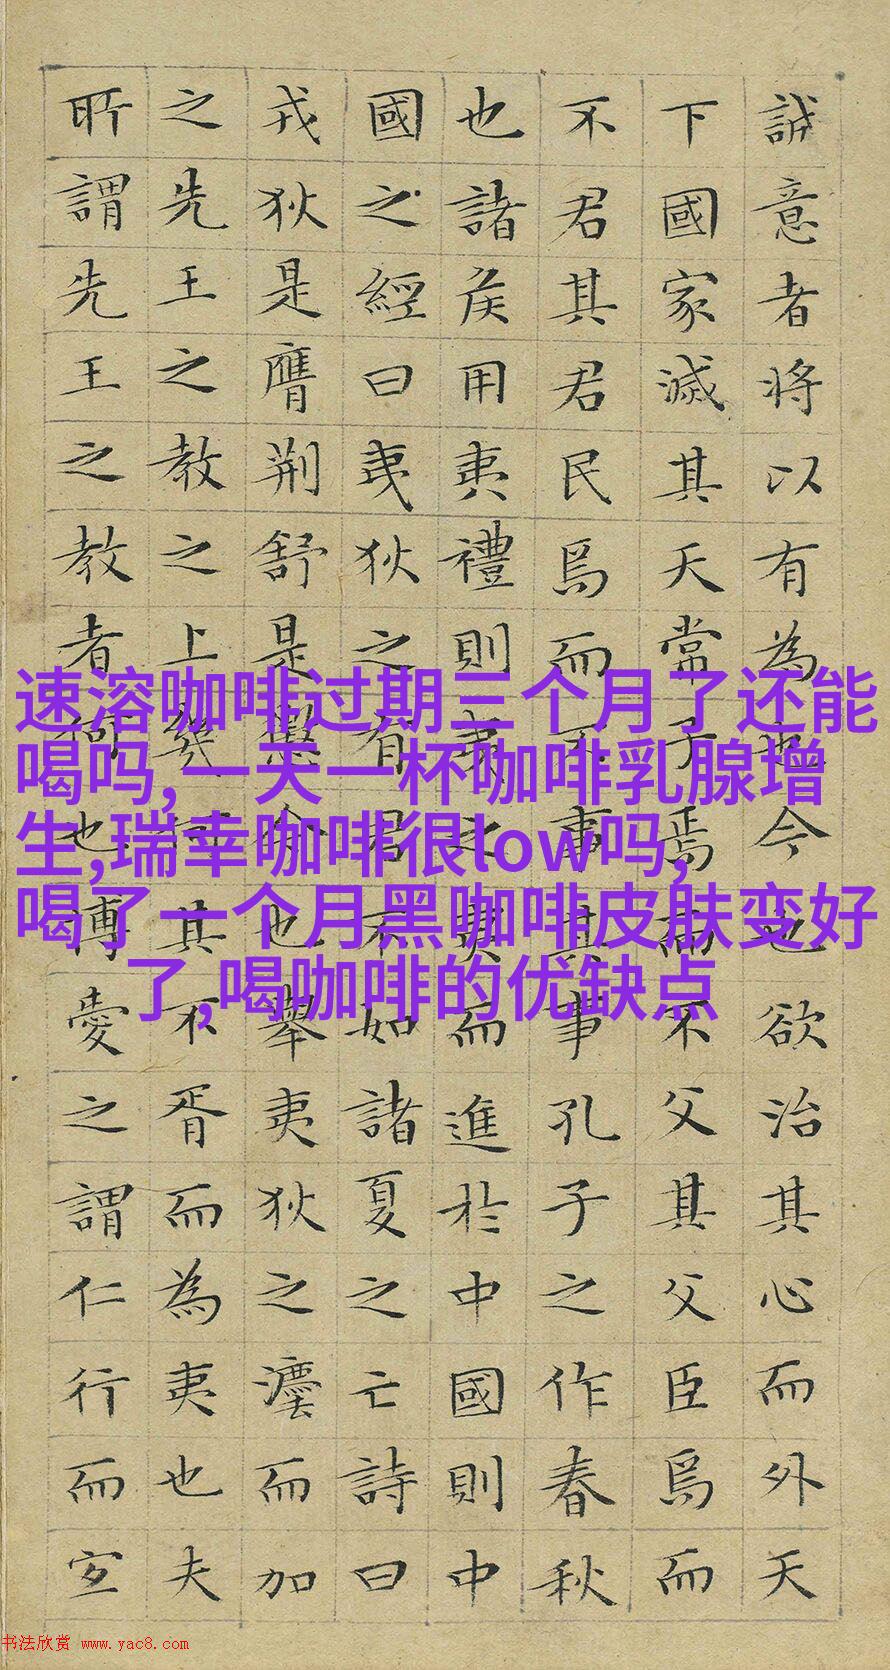 誠意者将以有為也今也欲治其心而外天
下國家滅其天常子焉而不父其父臣焉而
不君其君民焉而不事其事孔子之作春秋
也諸矦用夷禮則夷之夷而進於中國則中
國之經曰夷狄之有君不如諸夏之亡詩曰
戎狄是膺荆舒是懲今也舉夷狄之灋而加
之先王之教之上幾何其不胥而為夷也夫
所謂先王之教者何也博愛之謂仁行而宜
速溶咖啡过期三个月了还能
喝吗,一天一杯咖啡乳腺增
生,瑞幸咖啡很low吗,
喝了一个月黑咖啡皮肤变好
了,喝咖啡的优缺点
书法欣赏 www.yac8.com